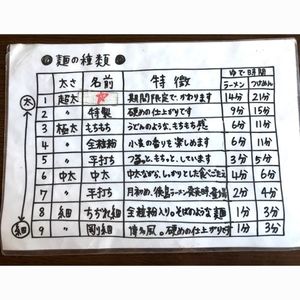 ◎麺の種類◎
太さ 名前 特徴 ゆで時間
ラーメン つけめん
太
1 超太 ☆ 期間限定で、かわります 14分 21分
2 〃 特製 硬めの仕上がりです 9分 15分
3 極太 もちもち うどんのような、もちもち感 6分 11分
4 〃 全粒粉 小麦の香りを楽しめます 6分 11分
5 〃 平打ち もっ、としています 3分 5分
6 中太 中太 中太ながら、しっかりとした食べごたえ 4分 6分
7 〃 平打ち 月初め、徳島ラーメン発売時、登場 2分 4分
8 細 ちぢれ細 全粒粉入り。そばのような麺 1分 3分
9 〃 剛細 博多風。硬めの仕上がりです 1分 3分
細